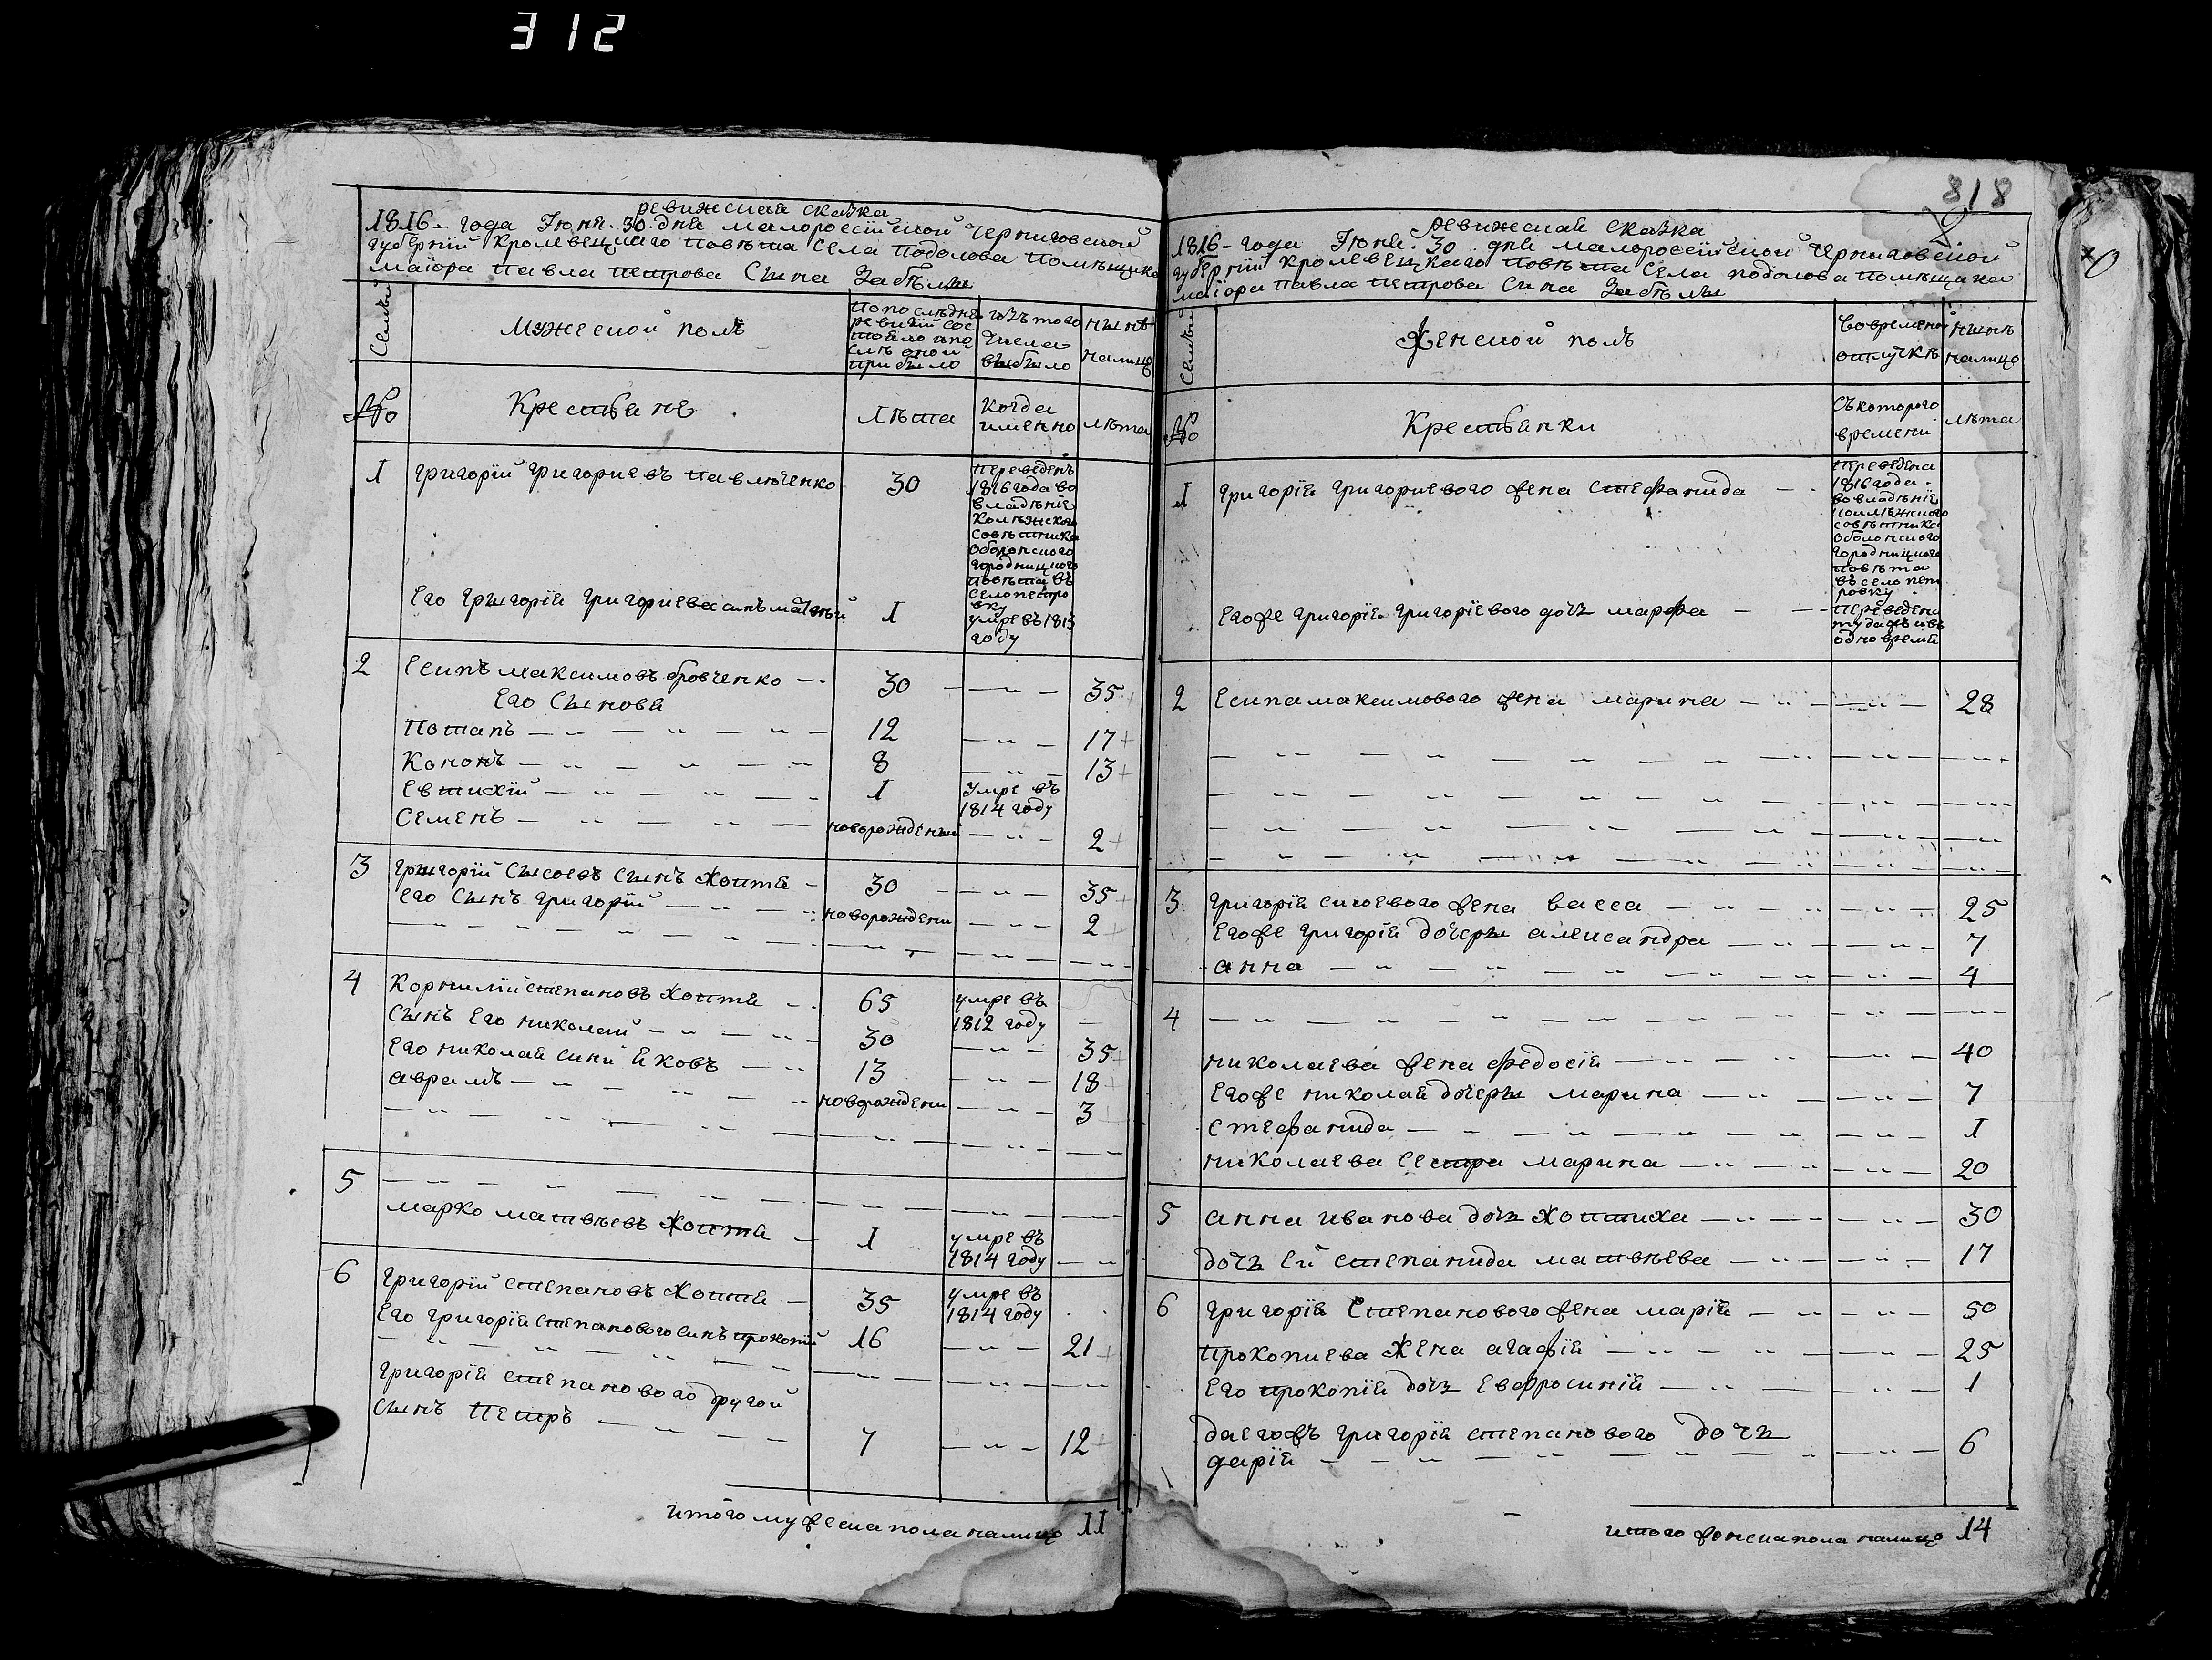 312
ревижская сказка
1816 - года Іюня. 30. дня малоросійской Черниговской
губерній кролевецкого повѣта села подолова помѣщика
маіора павла петрова сына Забѣлы
Семьи
Мужеской полъ
По послѣдней
ревизіи сос
тояло и по
слѣ оной
прибыло
изъ того
числа
выбыло
нынѣ
налицо
№
Крестьяне
Лѣта
когда
именно
лѣта
1
григорій григориевъ павлюченко
30
переведенъ
1816 года во
владѣніе
Колѣжского
совѣтника
Оболонского
городницкого
повѣта въ
село петро
вку
Его григорія григориева синъ матвѣй
1
умре въ 1813
году
2
Есипъ максимовъ бровченко - ..
30
- .. -
35
Его сынова
Потапъ
12
- .. -
17
Кононъ
8
- .. -
13
Евтихій
1
умре въ
1814 году
Семенъ
новорожденый
- .. -
2
3
григорій сысоевъ сынъ Хоптя -
30
- .. -
35
его сынъ григорій
новорождени
- .. -
2
4
Корнилій степановъ Хоптя - .
65
умре въ
1812 году
сынъ его николай
30
- .. -
35
его николая сини яковъ
13
- .. -
18
аврамъ
новорождени
- .. -
3
5
марко матвѣевъ Хоптя -
1
умре въ
1814 году
6
григорій степановъ Хоптя -
35
умре въ
1814 году
его григорія степанового синъ прокопій
16
- .. -
21
григорія степанового другой
сынъ Петръ
7
- .. -
12
итого мужеска пола налицо 11
818
ревижская сказка
1816 - года Іюня. 30. дня малоросійской Черниговской
губерній кролевецкаго повѣта села подолова помѣщика
маіора павла петрова сина Забѣлы
Семьи
Женской полъ
во времено
отлучкѣ
нынѣ
налицо
№
Крестьянки
съ которого
времени
лѣта
1
григорія григориевого жена стефанида
переведена
1816 года
во владѣніе
колѣжского
совѣтника
оболонского
городницкого
повѣта
въ село пет
ровку
его же григорія григоріевого дочь марфа
переведена
туда жъ и въ
одно время
2
Есипа максимового жена марина
28
3
григорія сисоевого жена васса
25
его же григорія дочеры александра
7
анна
4
4
николаева жена федосія
40
его же николая дочеры марина
7
стефанида
1
николаева сестра марина
20
5
анна иванова дочь Хоптиха
30
дочь ей степанида матвѣева
17
6
григорія степанового жена марія
50
прокопиева жена агафія
25
его прокопія дочь Евфросинія
1
да его жъ григорія степанового дочь
дарія
6
итого женска пола налицо 14